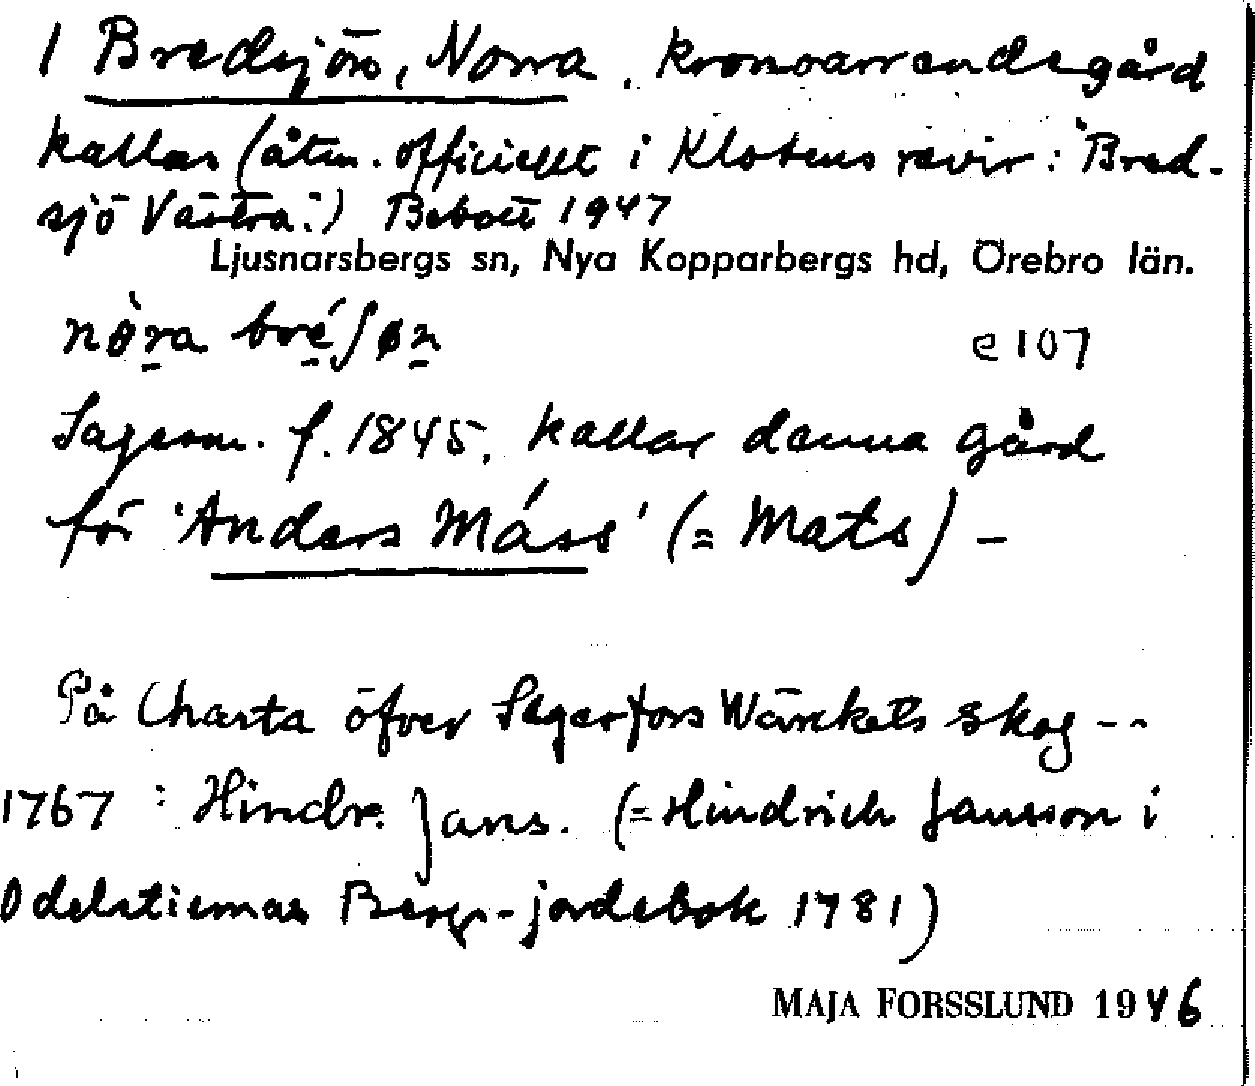 1 Bredsjön, Norra, kronoarrendegård
kallas (åtm. officiellt i Klotens revir: "Bred-
sjö Västra".) Bebott 1947
Ljusnarsbergs sn, Nya Kopparbergs hd, Örebro län.
nòra bréʃøn e 107
Sagesm. f. 1845, kallar denna gård
för 'Anders Máss' (= Mats) –
På Charta öfver Segerfors Wärckets skog ---
1767 : Hindr. Jans. (= Hindrich Jansson i
Odelstiernas Bergs-jordebok 1781)
MAJA FORSSLUND 1946